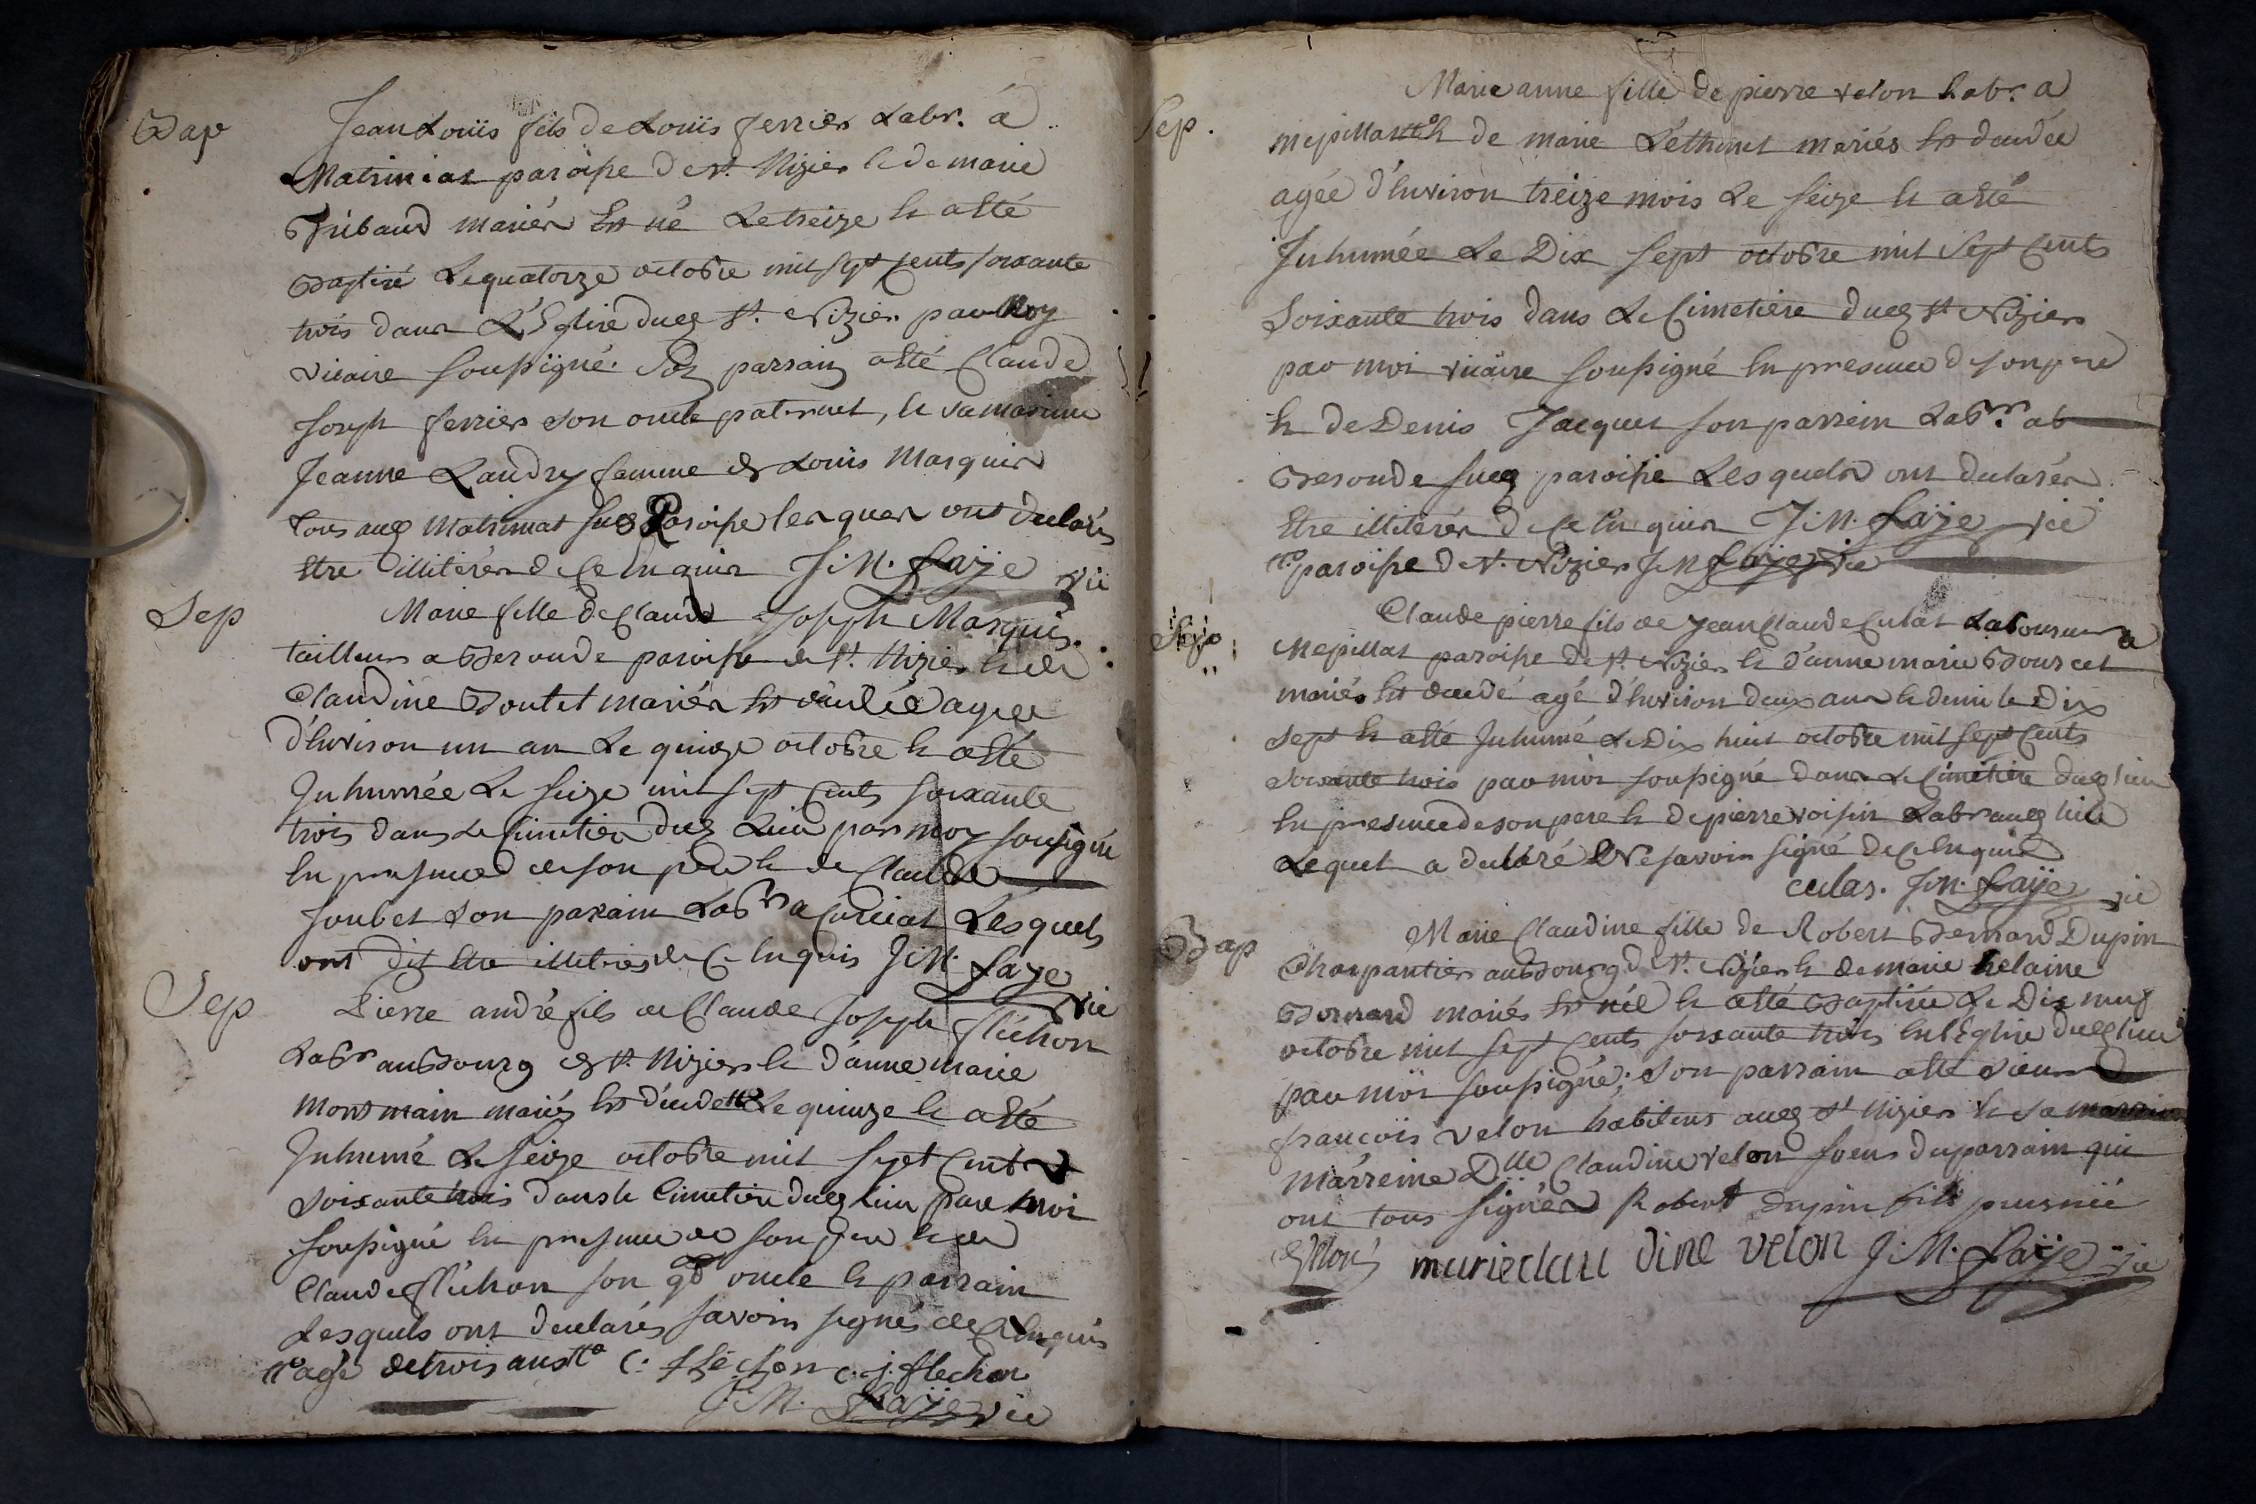 Bap
Jean Louis fils de Louis ferrier Labr. à
Matrinias paroisse de st. Nizier & de marie
Thibaud mariés est né Le treize & a esté
Baptisé Le quatorze octobre mil sept cents soixante
trois dans L'Eglise dud st. Nizier par Moy
vicaire soussigné. Son parrain a esté Claude
Joseph ferrier son oncle paternel, & sa maraine
Jeanne Landry femme de Louis Marquis
tous aud Matrinat sud Paroisse lesquels ont declarés
Etre illiterés de ce Enquis J: M. Faÿe vic
Sep
Marie fille de Claude Joseph Marquis
tailleur a Beronde paroisse de st. Nizier & de
Claudine Boutet mariés est décédée agée
d'Environ un an Le quinze octobre & a esté
Inhumée Le seize mil sept Cents soixante
trois dans Le Cimetier dud Lieu par moy soussigné
En presence de son pere & de Claude
Joubet son parain Labr a Curciat Lesquels
ont dit Etre illitérés de Ce Enquis J: M. Faÿe vic
Sep
Pierre andré fils de Claude Joseph fléchon
Labr au Bourg de st. Nizier & d'anne marie
Montmain mariés est décédé Le quinze & a esté
Inhumé Le seize octobre mil sept Cents
soixante trois dans le Cimetiere dud Lieu par moi
soussigné En presence de son pere & de
Claude fléchon son gd oncle & parrain
Lesquels ont declarés savoir signés de Ce Enquis
agé de trois ans C: fléchon c. j. flechon
J: M. Faÿe vic
Sep.
Marie anne fille de pierre velon Labr. a
mepillat & de marie Léthenet mariés Est decédée
agée d'Environ treize mois Le seize & a esté
Inhumée Le Dix sept octobre mil sept Cents
soixante trois dans Le Cimetiere dud st Nizier
par moi vicaire soussigné En presence de son pere
& de Denis Jacquet son parrein Labr. ab
Beronde sud paroisse Lesquels ont declarés
Etre illiterés de Ce Enquis J: M. Faÿe vic
paroisse de st. Nizier J: M Faÿe vic
Sep
Claude pierre fils de Jean Claude Culas Laboureur a
Mepillat paroisse de st. Nizier & d'anne marie Bourcet
mariés Est decédé agé d'Environ deux ans & demi le Dix
sept & a esté Inhumé Le Dix huit octobre mil sept Cents
soixante trois par moi soussigné dans Le Cimetiere dud lieu
En presence de son pere & de pierre voisin Labr aud lieu
Lequel a declaré Ne savoir signé de Ce Enquis
culas. J: M. Faÿe vic
Bap
Marie Claudine fille de Robert Bernard Dupin
Charpantier au Bourg de st. Nizier & de marie helaine
Bernard mariés Est née & a esté Baptisée Le Dix neuf
octobre mil sept Cents soixante trois En l'Eglise dud lieu
par moi soussigné; son parrain a esté sieur
françois velon habitens aud st Nizier & sa
marreine Dlle Claudine velon soeur du parrain qui
ont tous signés Robert dupin fils puisnée
marieclau dine velon J: M. Faÿe vic